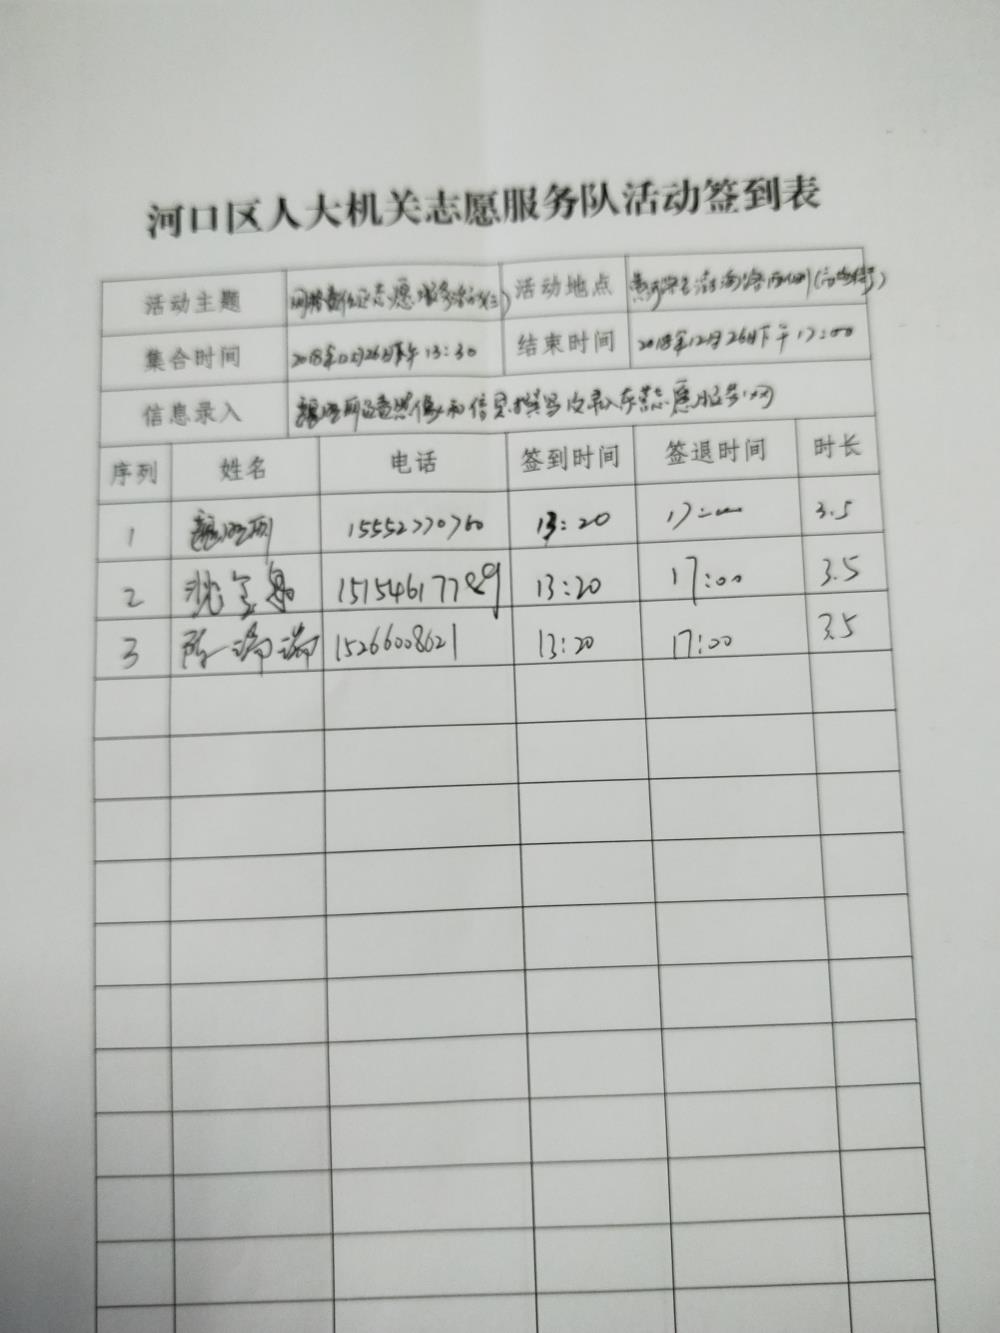 河口区人大机关志愿服务队活动签到表
活动主题 志愿服务活动(三) 活动地点
集合时间 2018年12月26日下午13:30 结束时间 2018年12月26日下午17:00
信息录入 录入 志愿服务网
序列 姓名 电话 签到时间 签退时间 时长
1 15552770760 13:20 17:00 3.5
2 15154617789 13:20 17:00 3.5
3 陈瑞瑞 15266008621 13:20 17:00 3.5